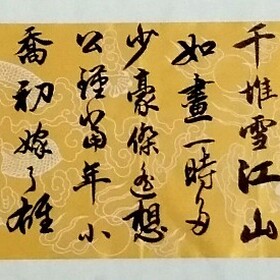 千堆雪江山
如畫一時多
少豪傑遙想
公瑾當年小
喬初嫁了雄